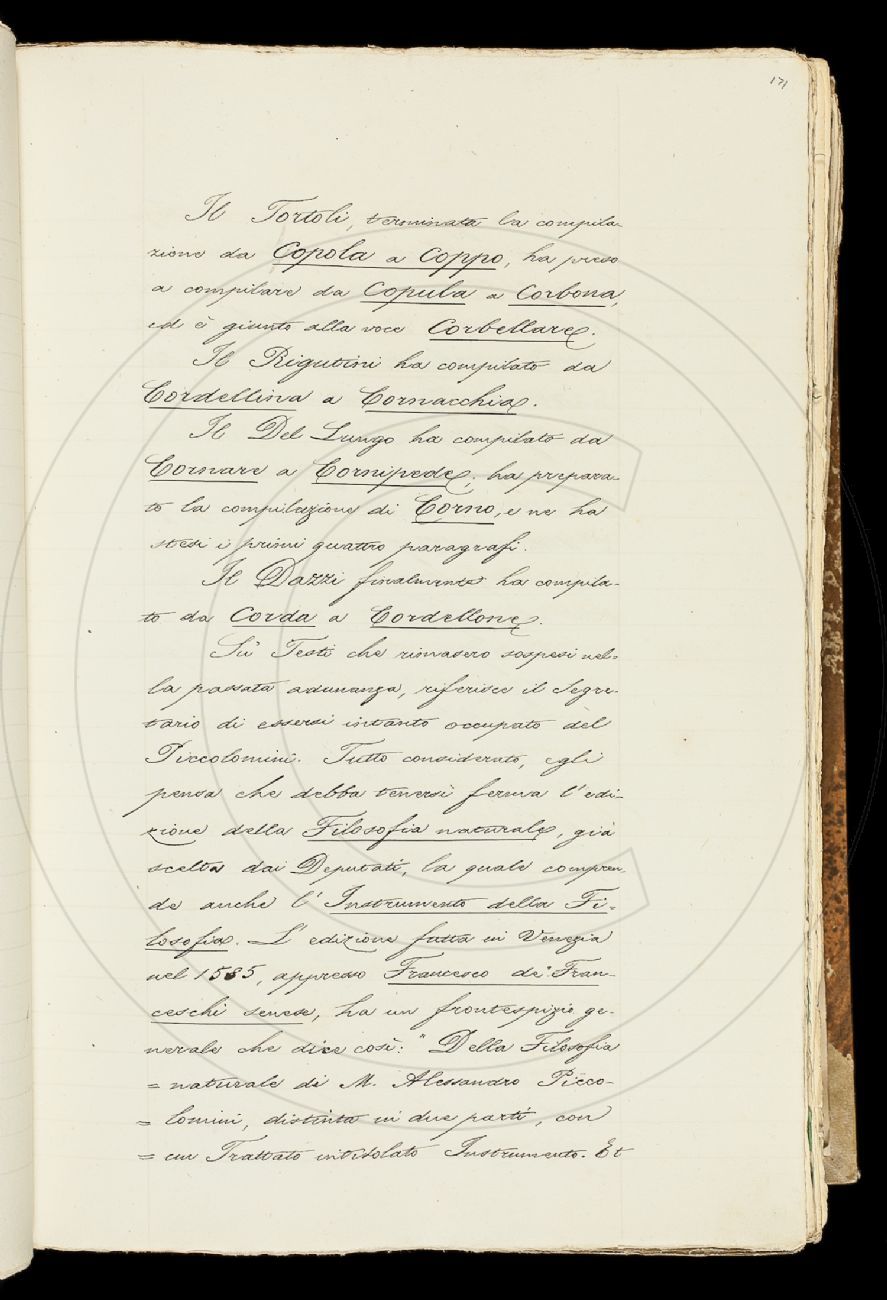 171
Il Tortoli, terminata la compila-
zione da Copola a Coppo, ha preso
a compilare da Copula a Corbona,
ed è giunto alla voce Corbellare.
Il Rigutini ha compilato da
Cordellina a Cornacchia.
Il Del Lungo ha compilato da
Cornare a Cornipede; ha prepara-
to la compilazione di Corno, e ne ha
stesi i primi quattro paragrafi.
Il Dazzi finalmente ha compila-
to da Corda a Cordellone.
Su' Testi che rimasero sospesi nel-
la passata adunanza, riferisce il Segre-
tario di essersi intanto occupato del
Piccolomini. Tutto considerato, egli
pensa che debba tenersi ferma l'edi-
zione della Filosofia naturale, già
scelta dai Deputati, la quale compren-
de anche l'Instrumento della Fi-
losofia. L'edizione fatta in Venezia
nel 1585, appresso Francesco de' Fran-
ceschi senese, ha un frontespizio ge-
nerale che dice così: "Della Filosofia
= naturale di M. Alessandro Picco-
= lomini, distinta in due parti, con
= un Trattato intitolato Instrumento. Et